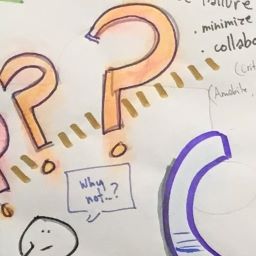 failure
. minimize
. collabo
(crit
(Amabile,
? ? ?
Why
not...?